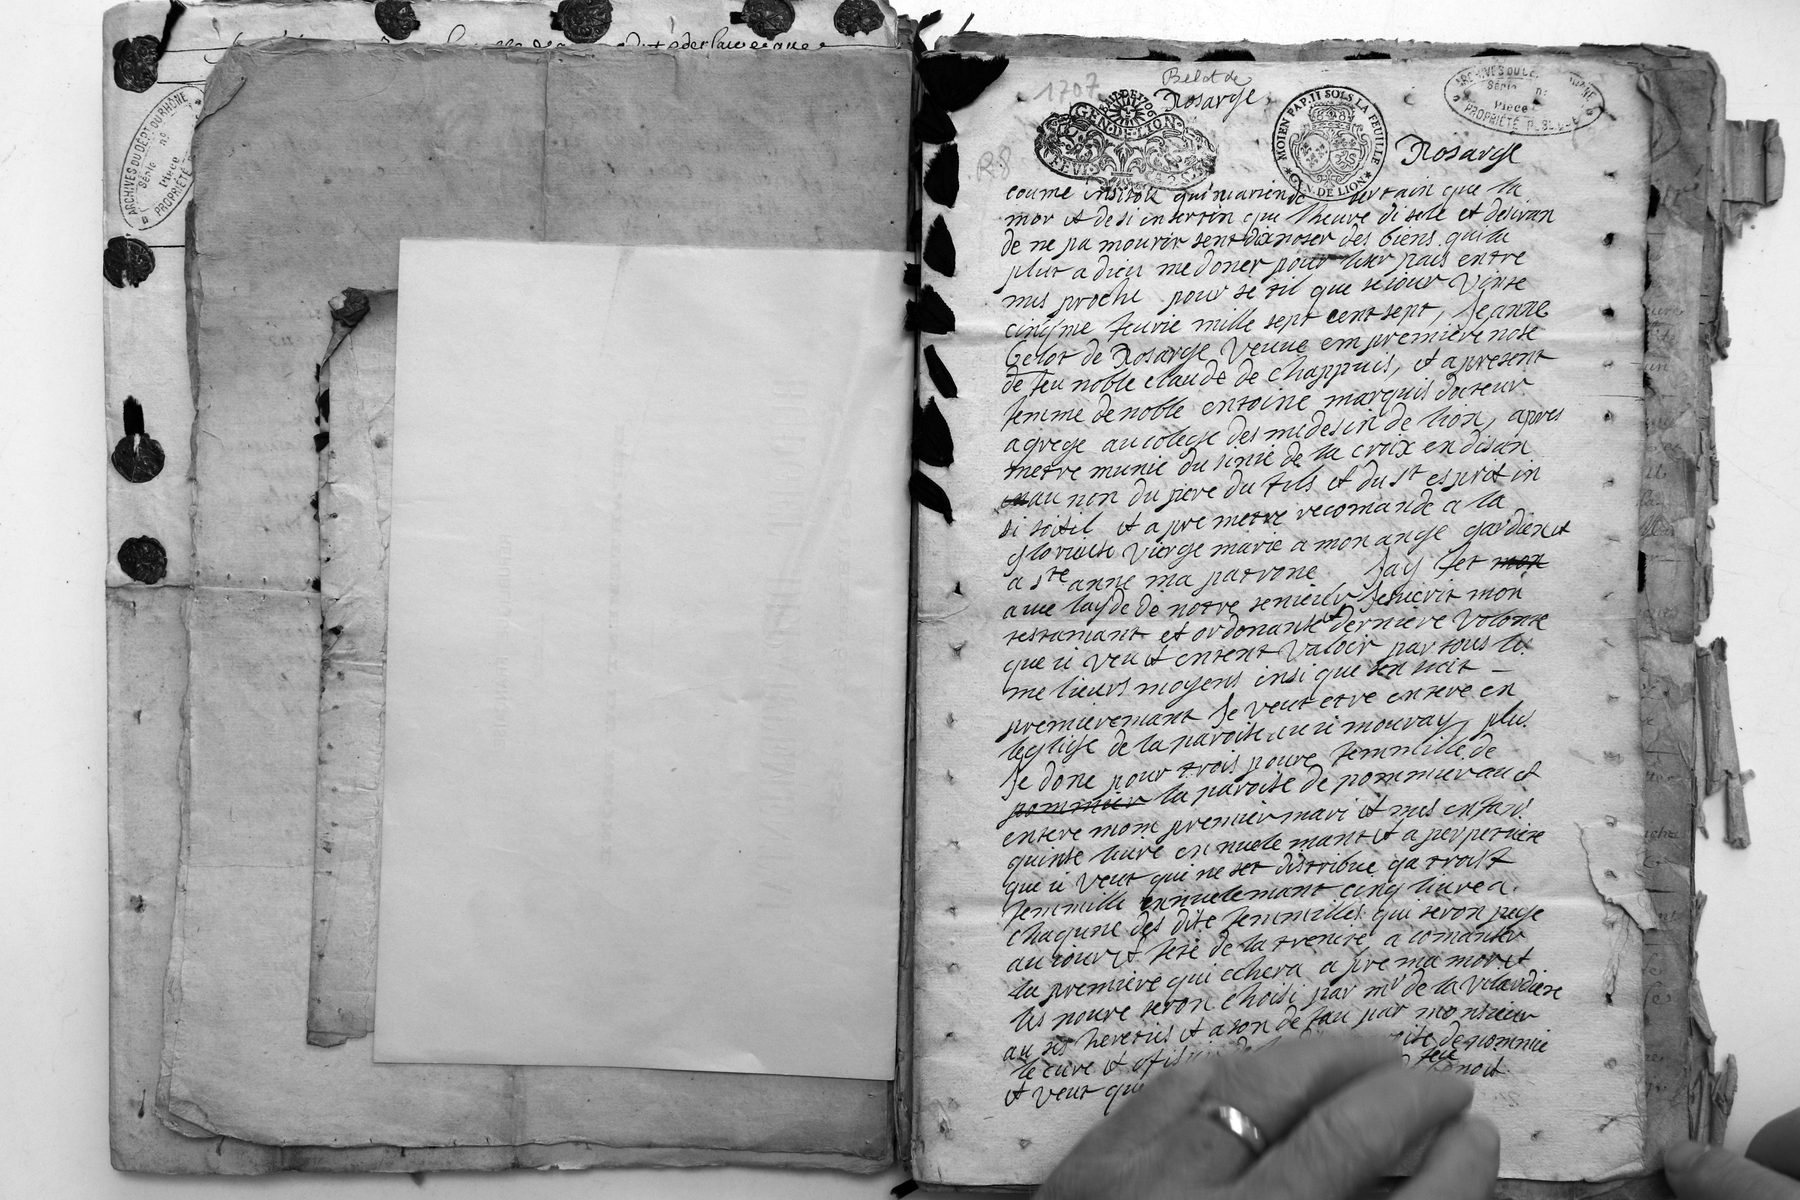 ARCHIVES DU DÉPT DU RHÔNE
Série nº
Pièce
PROPRIÉTÉ
1707
Belot de
Rosarge
GEN. DE LION
MOIEN PAP. II SOLS LA FEUILLE
GEN. DE LION
ARCHIVES DU
Série nº
Pièce
PROPRIÉTÉ PUBLIQUE
R8
Rosarge
coume insisoit qui nia rien de sertain que la
mor et de si insertin que lheure di sele et desiran
de ne pa mourir sent disposer des biens qui la
plut a dieu me doner pour leur pais entre
mes proche pour se til que sejour vinte
cinqme feurie mille sept cent sept, Jeanne
belot de Rosarge veuue em premiere nose
de feu noble claude de Chappuis, et a present
femme de noble entoine marquis docteur
agrege au colege des medesin de lion, apres
metre munie du sinie de la croix en disan
au non du pere du fils et du st esprit in
si soitil et apre metre recomande a la
glorieuse vierge marie a mon ange gardien et
a ste anne ma patrone Jay fet mon
aue layde de notre senieur Jesucrit mon
testamant et ordonanse et derniere volonte
que ie veu et entent valoir par tous les
melieurs moyens insi que sen suit
premieremant Je veut etre entere en
leglise de la paroise ou ie mouray, plus
Je done pour trois poure femmille de
pommier la paroise de pommier au et
entere mom premier mari et mes enfans
quinse liure ennuelemant et a perpetuite
que ie veut qui ne set distribue qa trois
femmille ennuelemant cinq liure a
chaqune des dite femmilles qui seron paye
au jour et fete de la trenite a comanser
la premiere qui echera a pre ma mor et
les poure seron choisi par mr de la Valardiere
au ses hereties et a son defau par monsieur
le cure et ofisie de pommie
et veut que